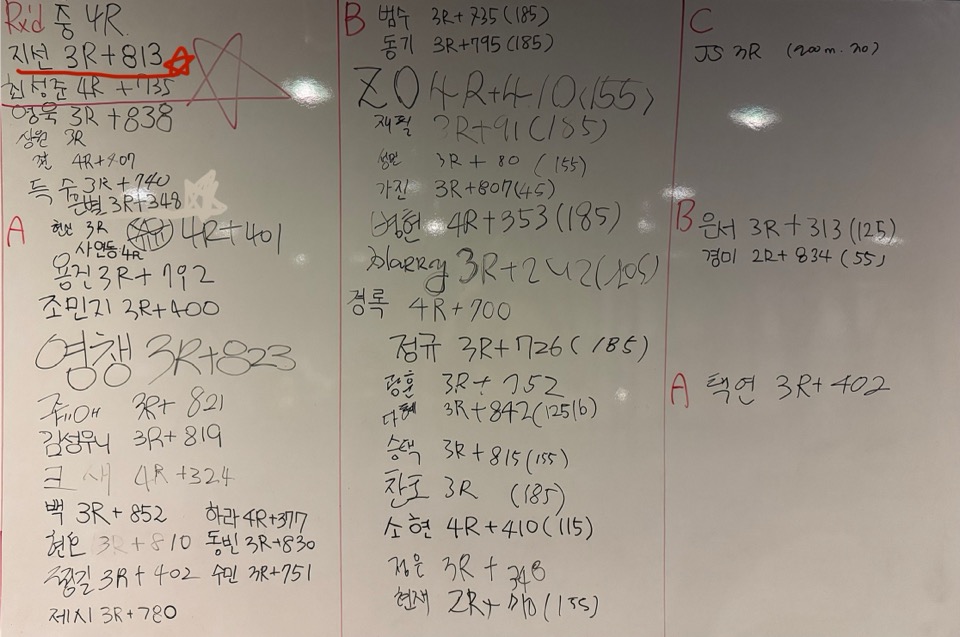 Rx'd 중 4R
지선 3R+813
최성준 4R +735
영욱 3R+838
상원 3R
결 4R+407
득수 3R+740
문별 3R+348
A
현진 3R
4R+401
사연등 4R
용진 3R+792
조민지 3R+400
영챙 3R+823
쥬애 3R+ 821
김성우니 3R+819
크새 4R+324
백 3R+852 하라 4R+377
현은 3R+810 동빈 3R+830
3R+402 수민 3R+751
제시 3R+780
B 범수 3R+735(185)
동기 3R+795(185)
ZO 4R+410(155)
재필 3R+91(185)
3R+80 (155)
가진 3R+807(45)
병현 4R+353(185)
Harry 3R+242(105)
경록 4R+700
정규 3R+726(185)
광훈 3R+752
다혜 3R+842(125lb)
승택 3R+815(155)
찬호 3R (185)
소현 4R+410(115)
정은 3R+348
현재 2R+ (155)
C
JS 3R (200m.20)
B 은서 3R+313(125)
경미 2R+834(55)
A 택연 3R+402